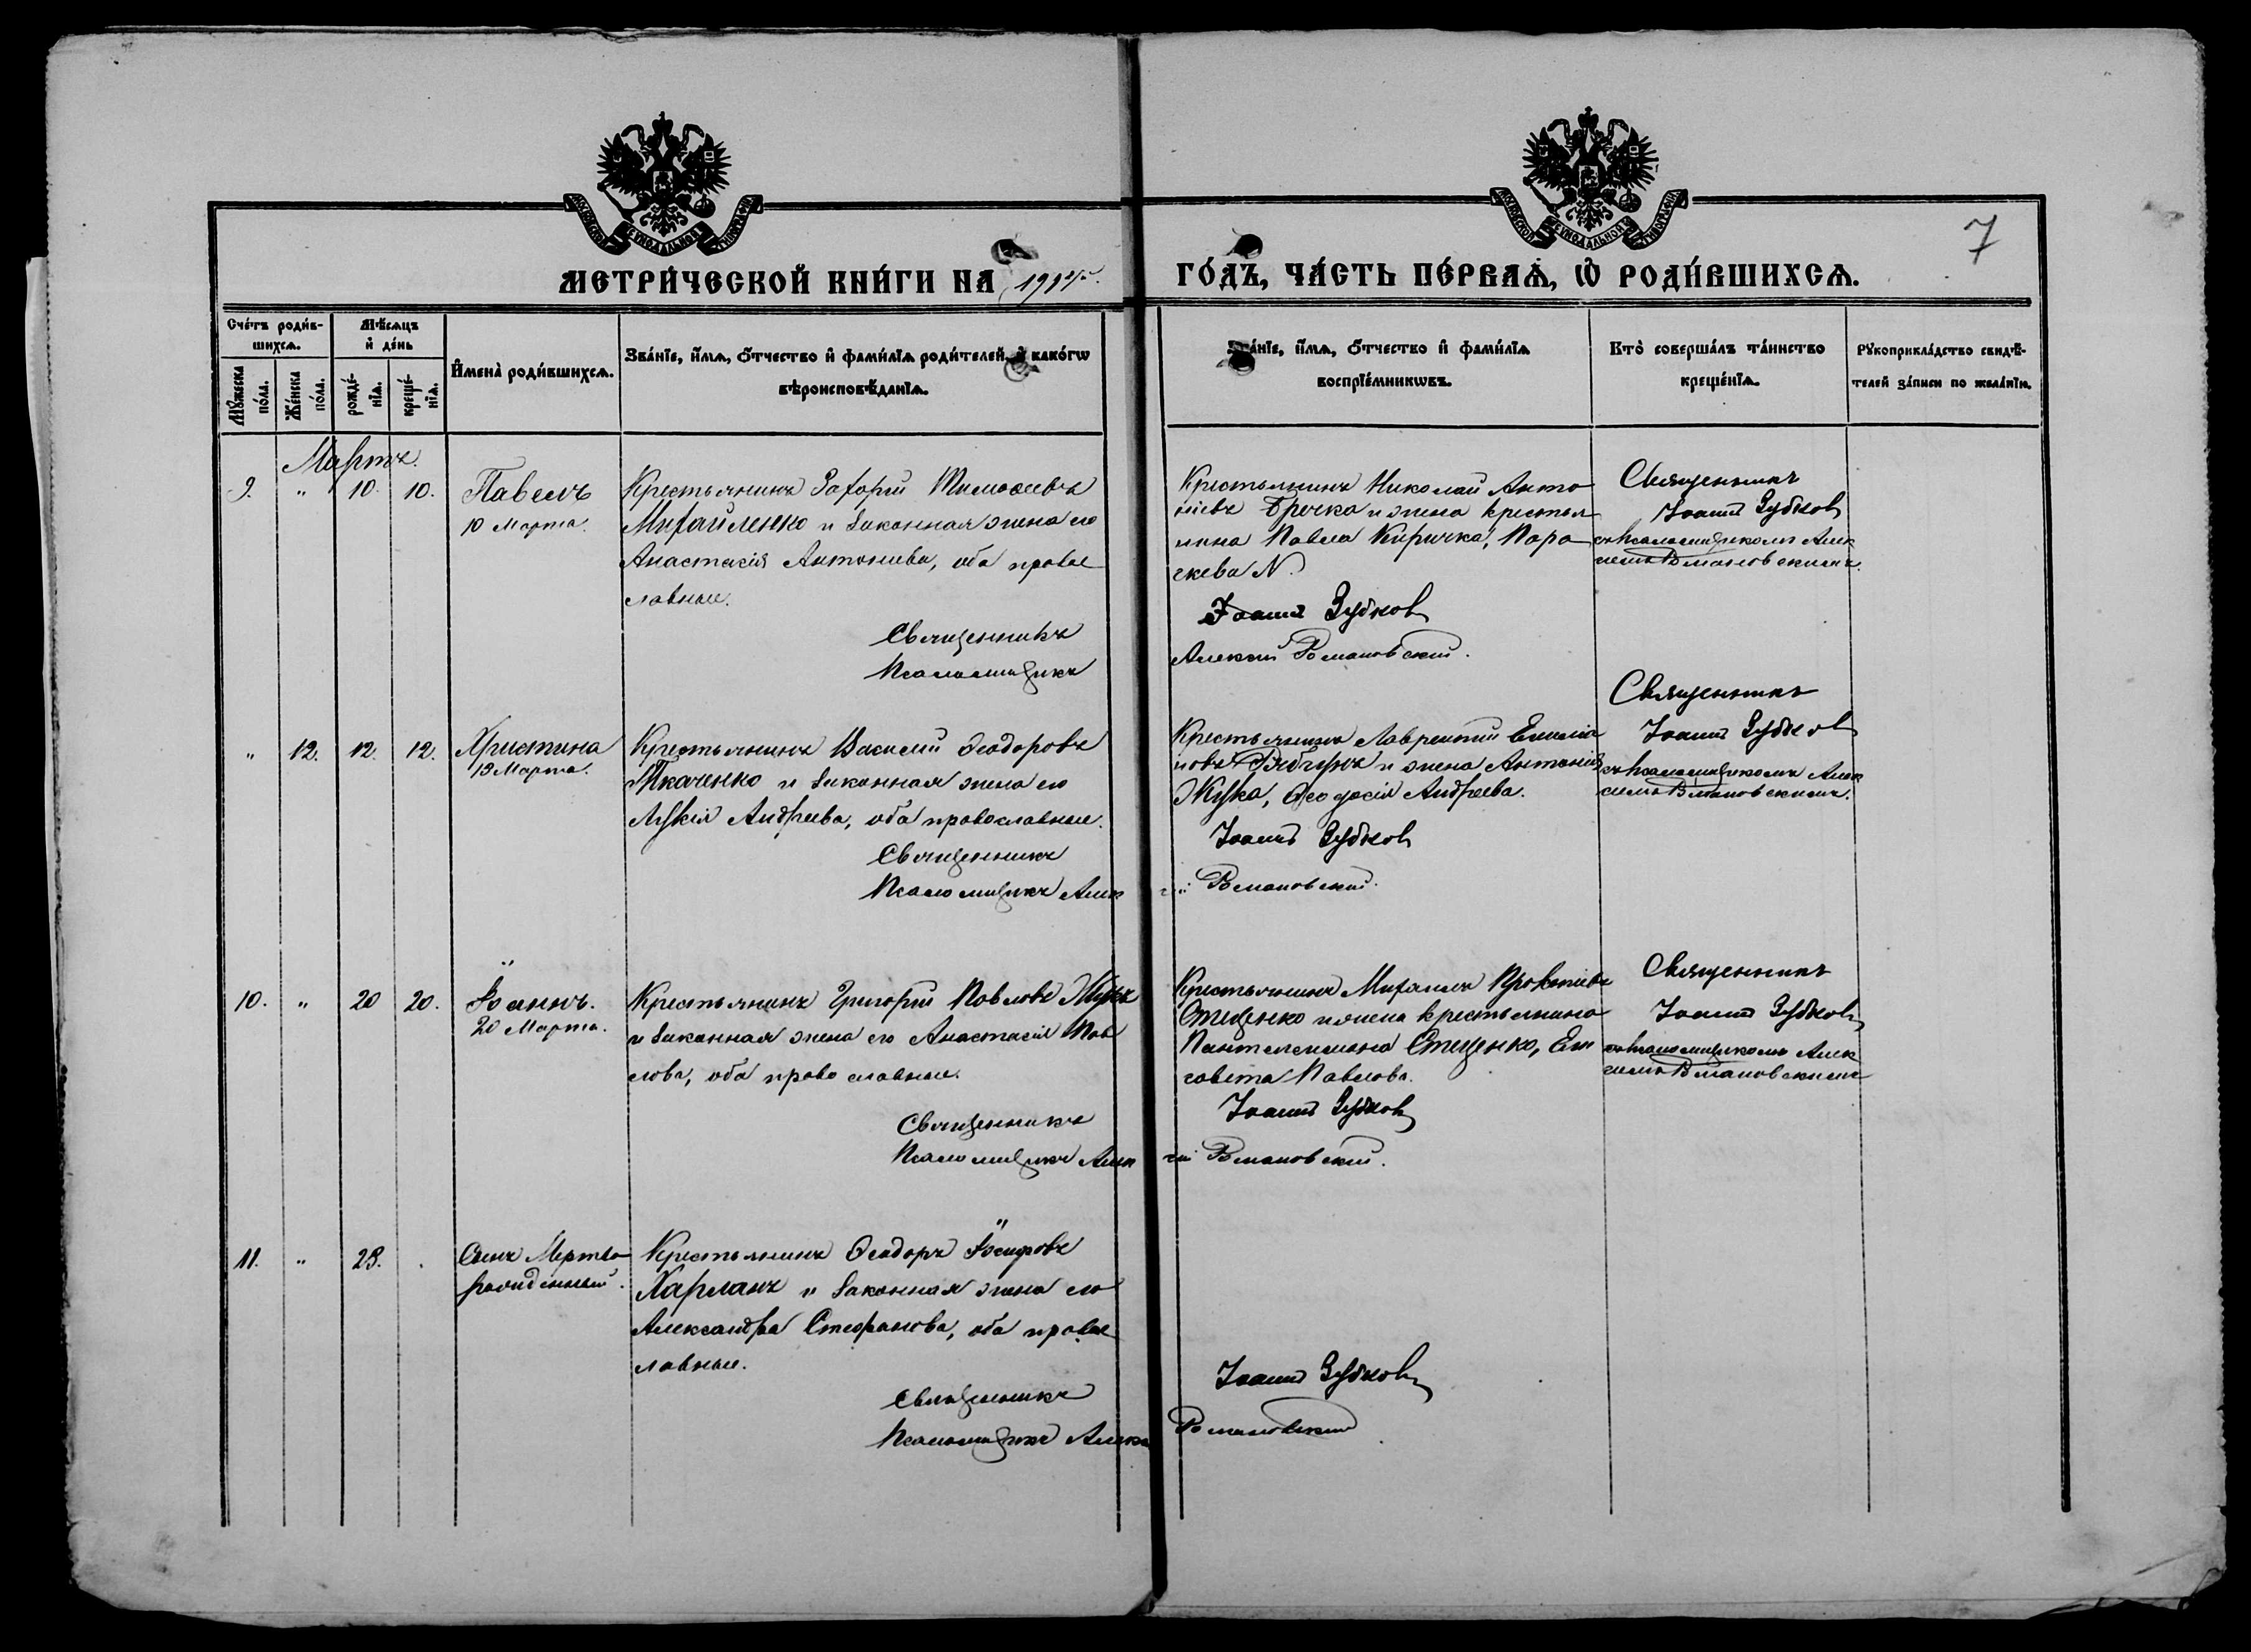 МОСКОВСКОЙ СѴНОДАЛЬНОЙ ТИПОГРАФІИ
МОСКОВСКОЙ СѴНОДАЛЬНОЙ ТИПОГРАФІИ
7
МЕТРИ́ЧЕСКОЙ КНИ́ГИ НА
ГО́ДЪ, ЧА́СТЬ ПЕ́РВАѦ, Ѡ҆ РОДИ́ВШИХСѦ.
Сче́тъ роди́в-
шихсѧ.
Мѣ́сѧцъ
и҆ де́нь
Мꙋ́жеска
по́ла.
Же́нска
по́ла.
рожде́-
нїѧ.
креще́-
нїѧ.
И҆мена̀ роди́вшихсѧ.
Зва́нїе, и҆́мѧ, ѻ҆́тчество и҆ фами́лїѧ роди́телей, и҆ како́гѡ
вѣроисповѣ́данїѧ.
Зва́нїе, и҆́мѧ, ѻ҆́тчество и҆ фами́лїѧ
воспрїе́мникѡвъ.
Кто̀ соверша́лъ та́инство
креще́нїѧ.
Рꙋкоприкла́дство свидѣ́-
телей за́писи по жела́нїю.
Мартъ.
9. " 10. 10.
Павелъ
10 Марта.
Крестьянинъ Захарій Тимоѳеевъ
Михайленко и законная жена его
Анастасія Антоніева, оба правос
лавные.
Священникъ
Псаломщикъ
Крестьянинъ Николай Анто
ніевъ Гречка и жена крестья
нина Павла Киричка, Пара
скева N.
Іоаннъ Зубковъ
Алексій Романовскій.
Священникъ
Іоаннъ Зубковъ
съ псаломщикомъ Алек
сіемъ Романовскимъ.
" 12. 12. 12.
Христина
13 Марта.
Крестьянинъ Василій Ѳеодоровъ
Ткаченко и законная жена его
Лукія Андреева, оба православные.
Священникъ
Псаломщикъ Алек
Крестьянинъ Лаврентій Емелія
новъ Рябчунъ и жена Антонія
Жука, Ѳеодосія Андреева.
Іоаннъ Зубковъ
сій Романовскій.
Священникъ
Іоаннъ Зубковъ
съ псаломщикомъ Алек
сіемъ Романовскимъ.
10. " 20 20.
Іоаннъ.
20 Марта.
Крестьянинъ Григорій Павловъ Жукъ
и законная жена его Анастасія Пав
лова, оба православные.
Священникъ
Псаломщикъ Алек
Крестьянинъ Михаилъ Прокопіевъ
Стеценко и жена крестьянина
Пантелеимона Стеценко, Ели
савета Павлова.
Іоаннъ Зубковъ
сій Романовскій.
Священникъ
Іоаннъ Зубковъ
съ псаломщикомъ Алек
сіемъ Романовскимъ
11. " 23.
Сынъ Мертво
рожденный.
Крестьянинъ Ѳеодоръ Іосифовъ
Харланъ и законная жена его
Александра Стефанова, оба правос
лавные.
Священникъ
Псаломщикъ Алексій
Іоаннъ Зубковъ
Романовскій